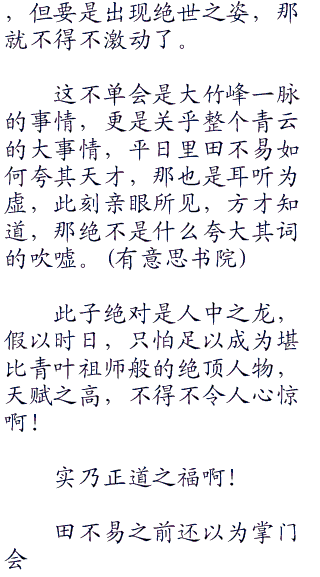 ，但要是出现绝世之姿，那
就不得不激动了。
这不单会是大竹峰一脉
的事情，更是关乎整个青云
的大事情，平日里田不易如
何夸其天才，那也是耳听为
虚，此刻亲眼所见，方才知
道，那绝不是什么夸大其词
的吹嘘。(有意思书院)
此子绝对是人中之龙，
假以时日，只怕足以成为堪
比青叶祖师般的绝顶人物，
天赋之高，不得不令人心惊
啊！
实乃正道之福啊！
田不易之前还以为掌门
会